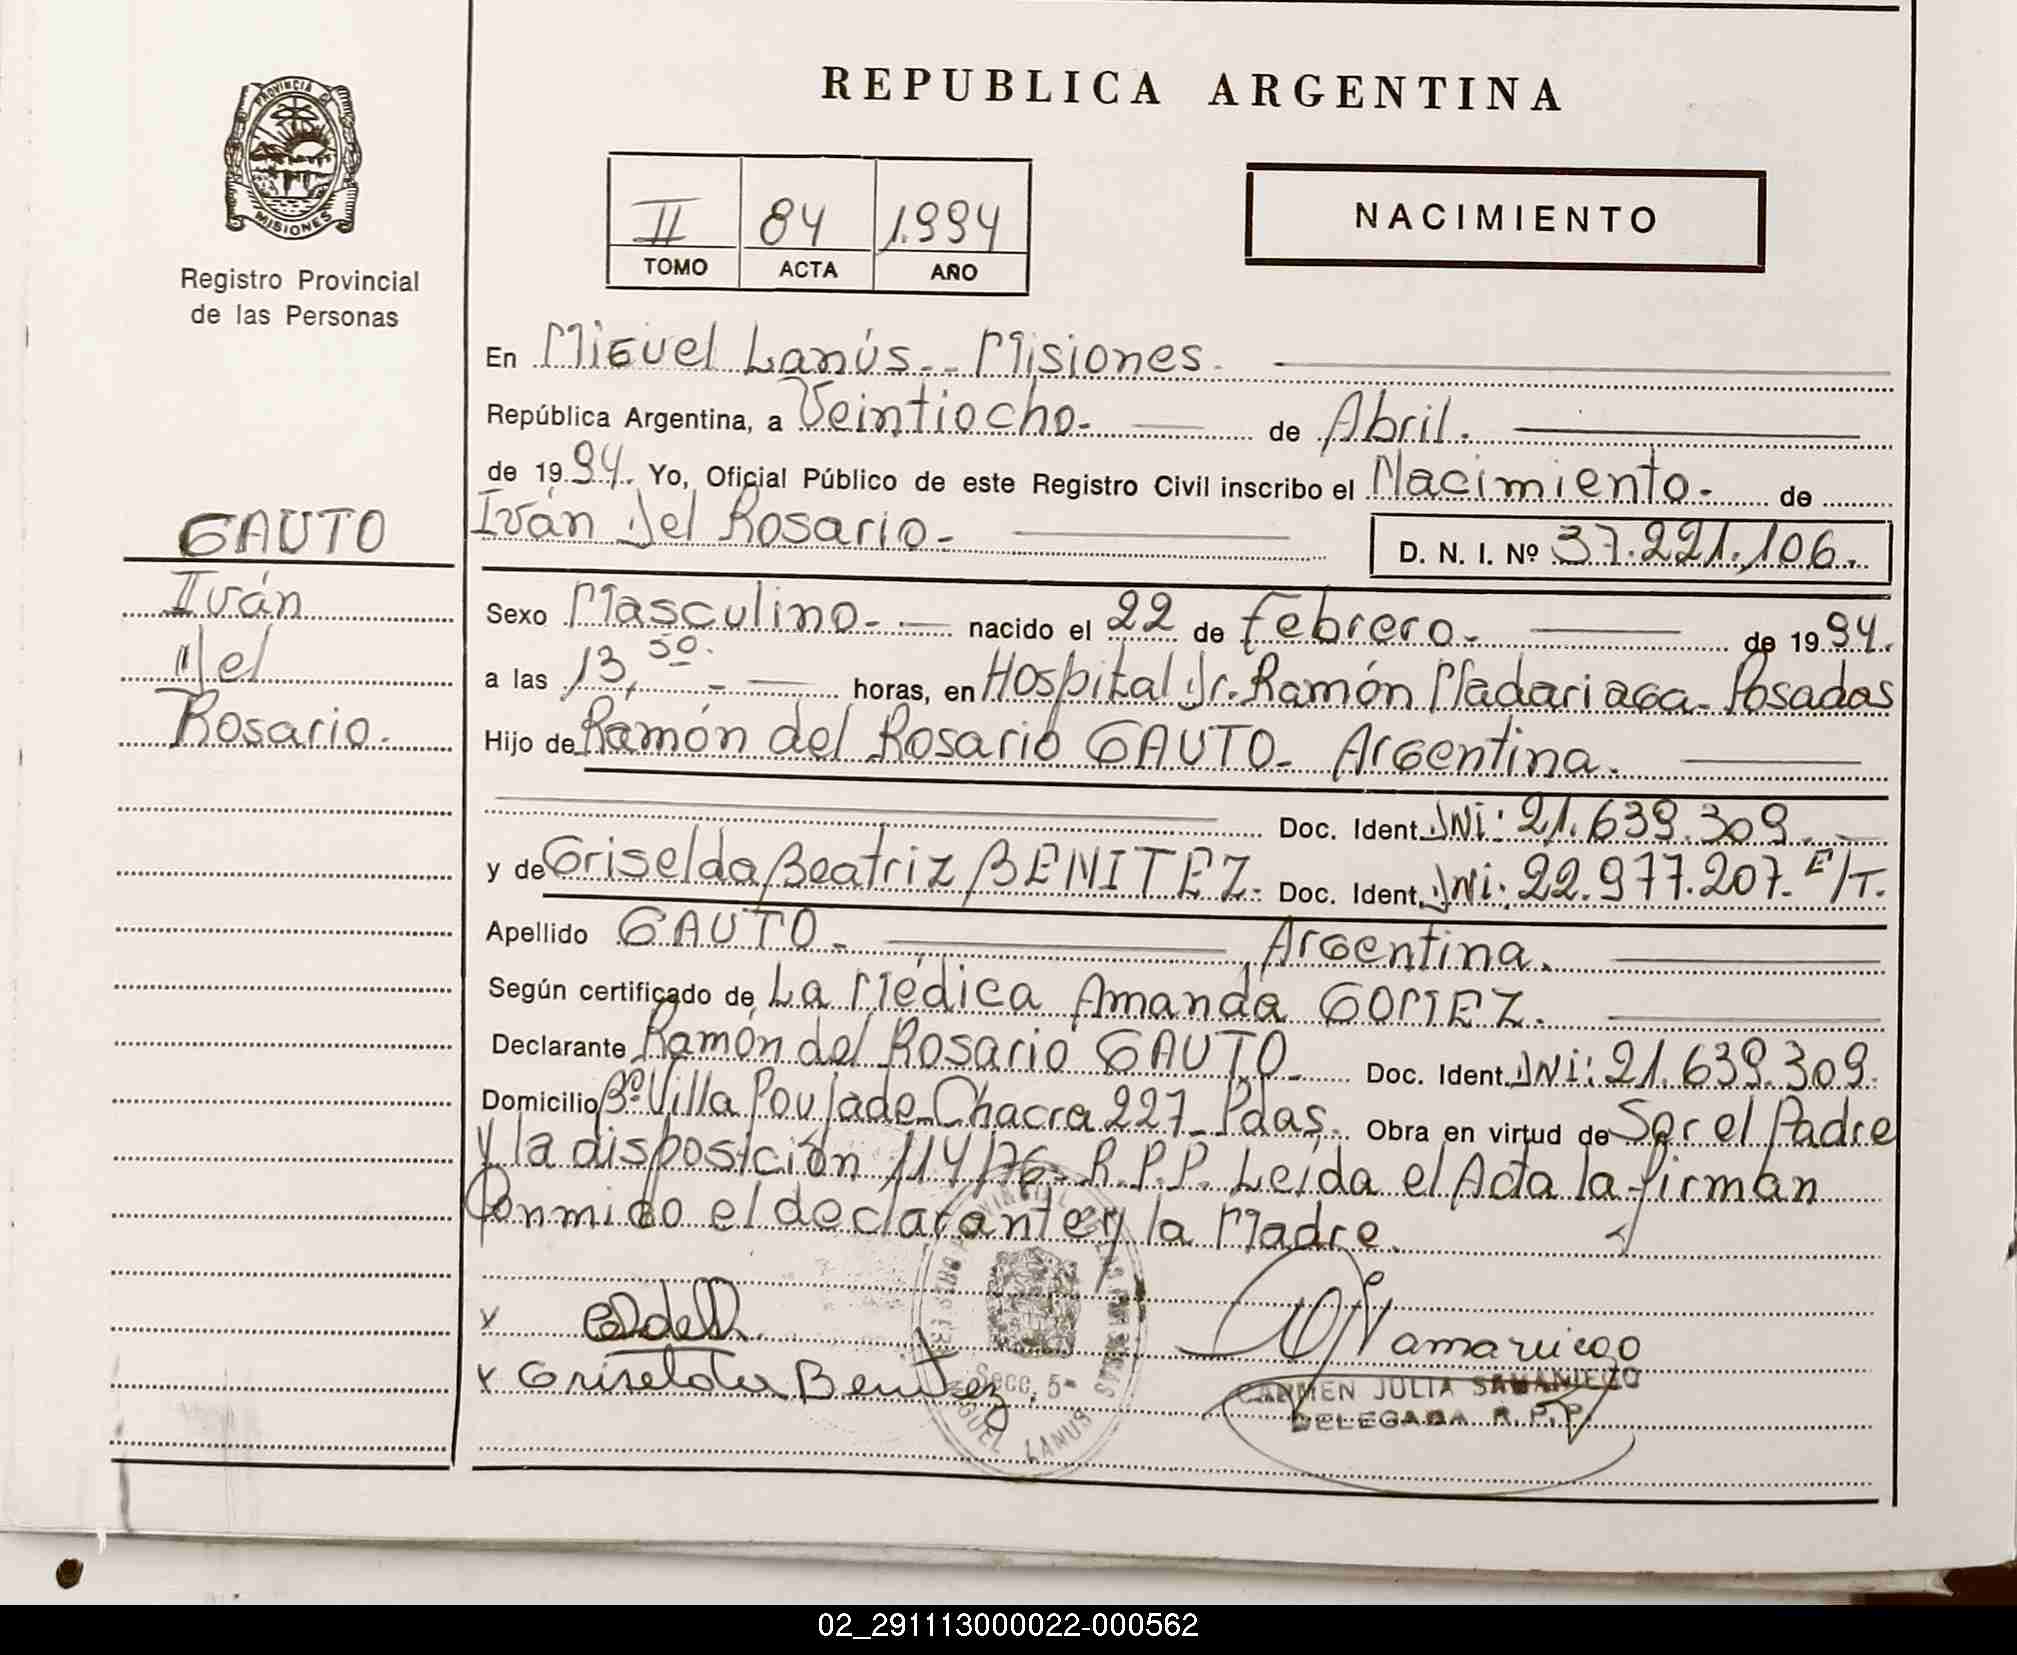 PROVINCIA DE
MISIONES
Registro Provincial
de las Personas
REPUBLICA ARGENTINA
II 84 1.994
TOMO ACTA AÑO
NACIMIENTO
En Miguel Lanús - Misiones.
República Argentina, a Veintiocho.- de Abril.
de 1994. Yo, Oficial Público de este Registro Civil inscribo el Nacimiento.- de
GAUTO
Iván
Del
Rosario.
Iván Del Rosario.- D. N. I. Nº 37.221.106.
Sexo Masculino.- nacido el 22 de Febrero.- de 1994.
a las 13,50. horas, en Hospital Dr. Ramón Madariaga - Posadas
Hijo de Ramón del Rosario GAUTO - Argentina.
Doc. Ident. DNi: 21.639.309.
y de Griselda Beatriz BENITEZ. Doc. Ident. DNi: 22.977.207. E/T.
Apellido GAUTO - Argentina.
Según certificado de La Médica Amanda GOMEZ.
Declarante Ramón del Rosario GAUTO - Doc. Ident. DNi: 21.639.309.
Domicilio Bº Villa Poujade - Chacra 227 - Pdas. Obra en virtud de Ser el Padre
y la disposición 114/76 - R.P.P. Leída el Acta la firman
Conmigo el declarante y la Madre.
x
x Griselda Benitez
Secc. 5ª
MIGUEL LANUS
CARMEN JULIA SAMANIEGO
DELEGADA R.P.P.
02_291113000022-000562